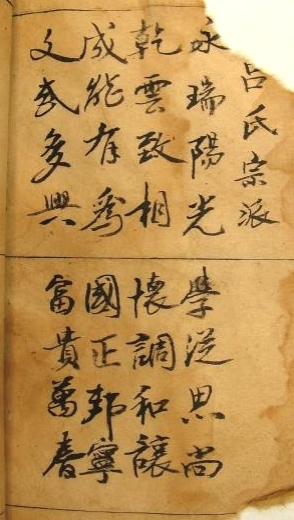 吕氏宗派
永瑞陽光
學從思尚
乾雲致相
懷調和讓
成能有為
國正邦寧
文武多興
富貴萬春